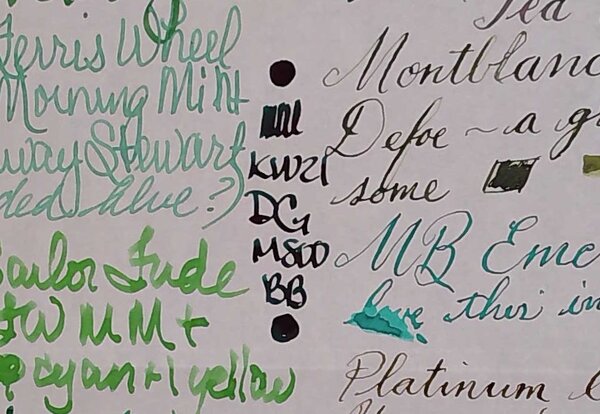 Ferris Wheel
Morning Mint
away Stewart
ded blue?)
Sailor Jude
FW MM +
cyan + 1 yellow
KWZI
DG
M800
BB
Tea
Montblanc
Defoe ~ a gr
some
MB Eme
love this in
Platinum